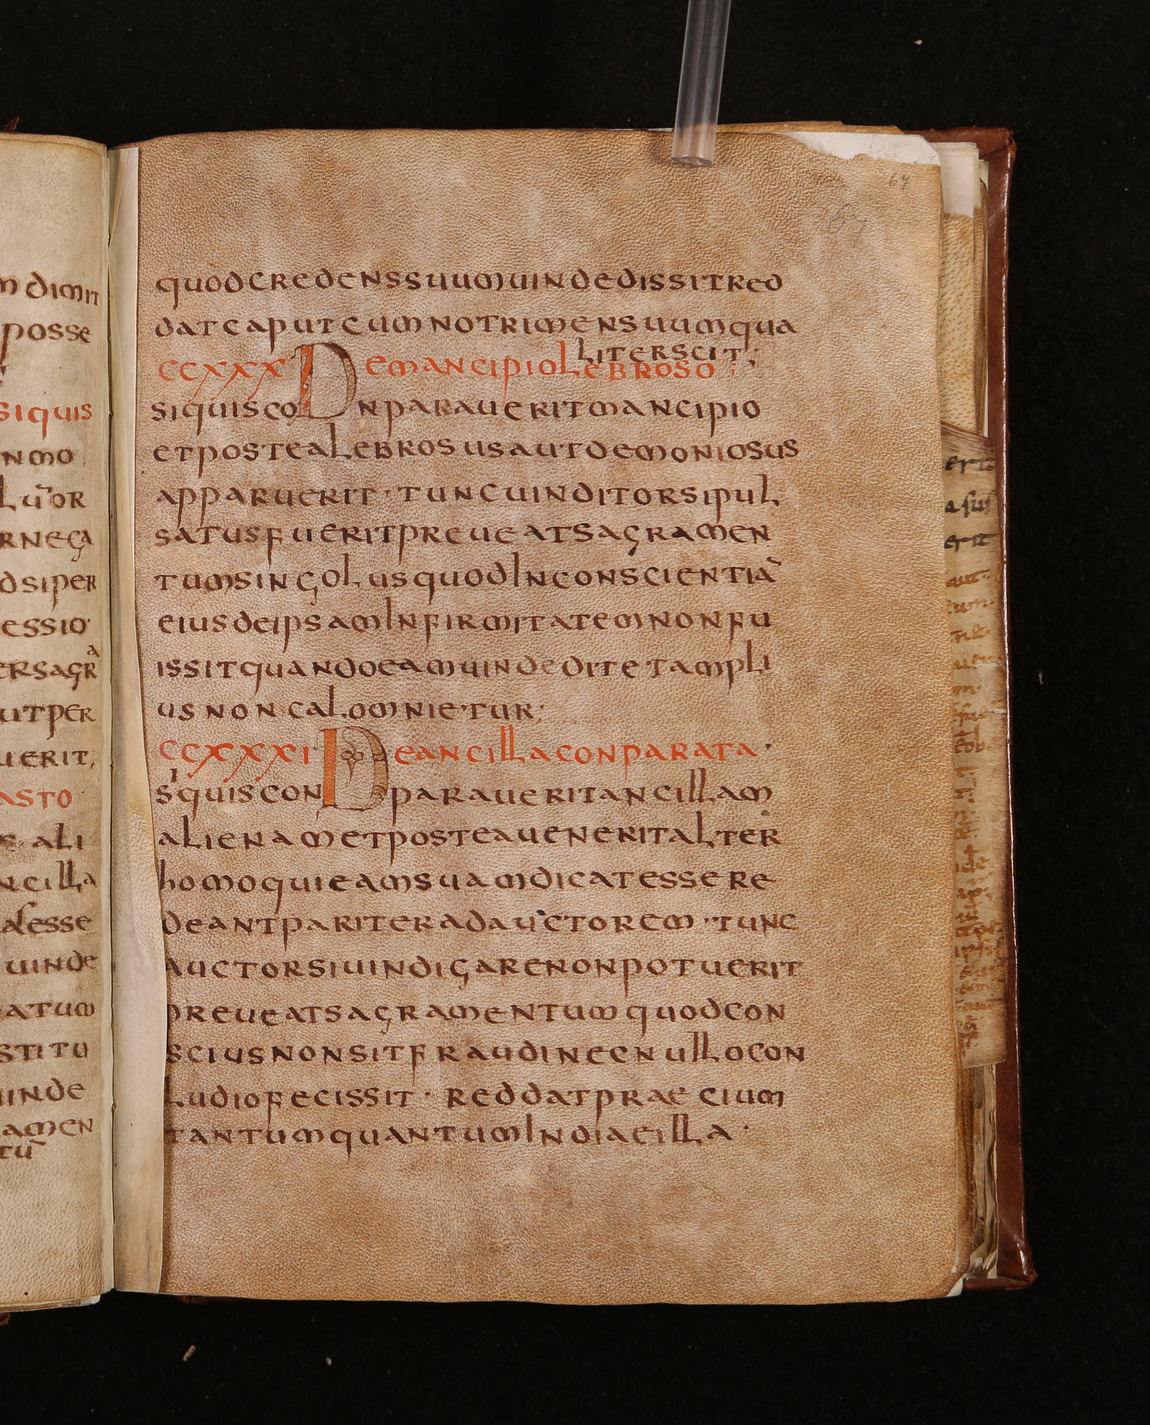 n dimit
posse
siquis
nmo
lūor
rnega
dsiper
essio
ersagr
a
utper
uerit,
asto
ali
ncilla
alesse
uinde
atum
stitu
uinde
amen
tū
64
67
quodcredenssuumuindedissitred
datcaputcumnotrimensuumqua
literscit;
ccxxx Demancipiolebroso
siquisconparaueritmancipio
etpostealebrosusautdemoniosus
apparuerit· tuncuinditorsipul
satusfueritpreueatsagramen
tumsingolusquodinconscientiā
eiusdeipsaminfirmitatemnonfu
issitquandoeamuindeditetampli
usnoncalomnietur;
ccxxxi Deancillaconparata·
siquisconparaueritancillam
alienametposteaueneritalter
homoquieamsuamdicatessere
deantpariteradauctorem·tunc
auctorsiuindigarenonpotuerit
preueatsagramentumquodcon
sciusnonsitfraudinecnullocon
ludiofecissit· reddatpraecium
tantumquantumindiacilla·